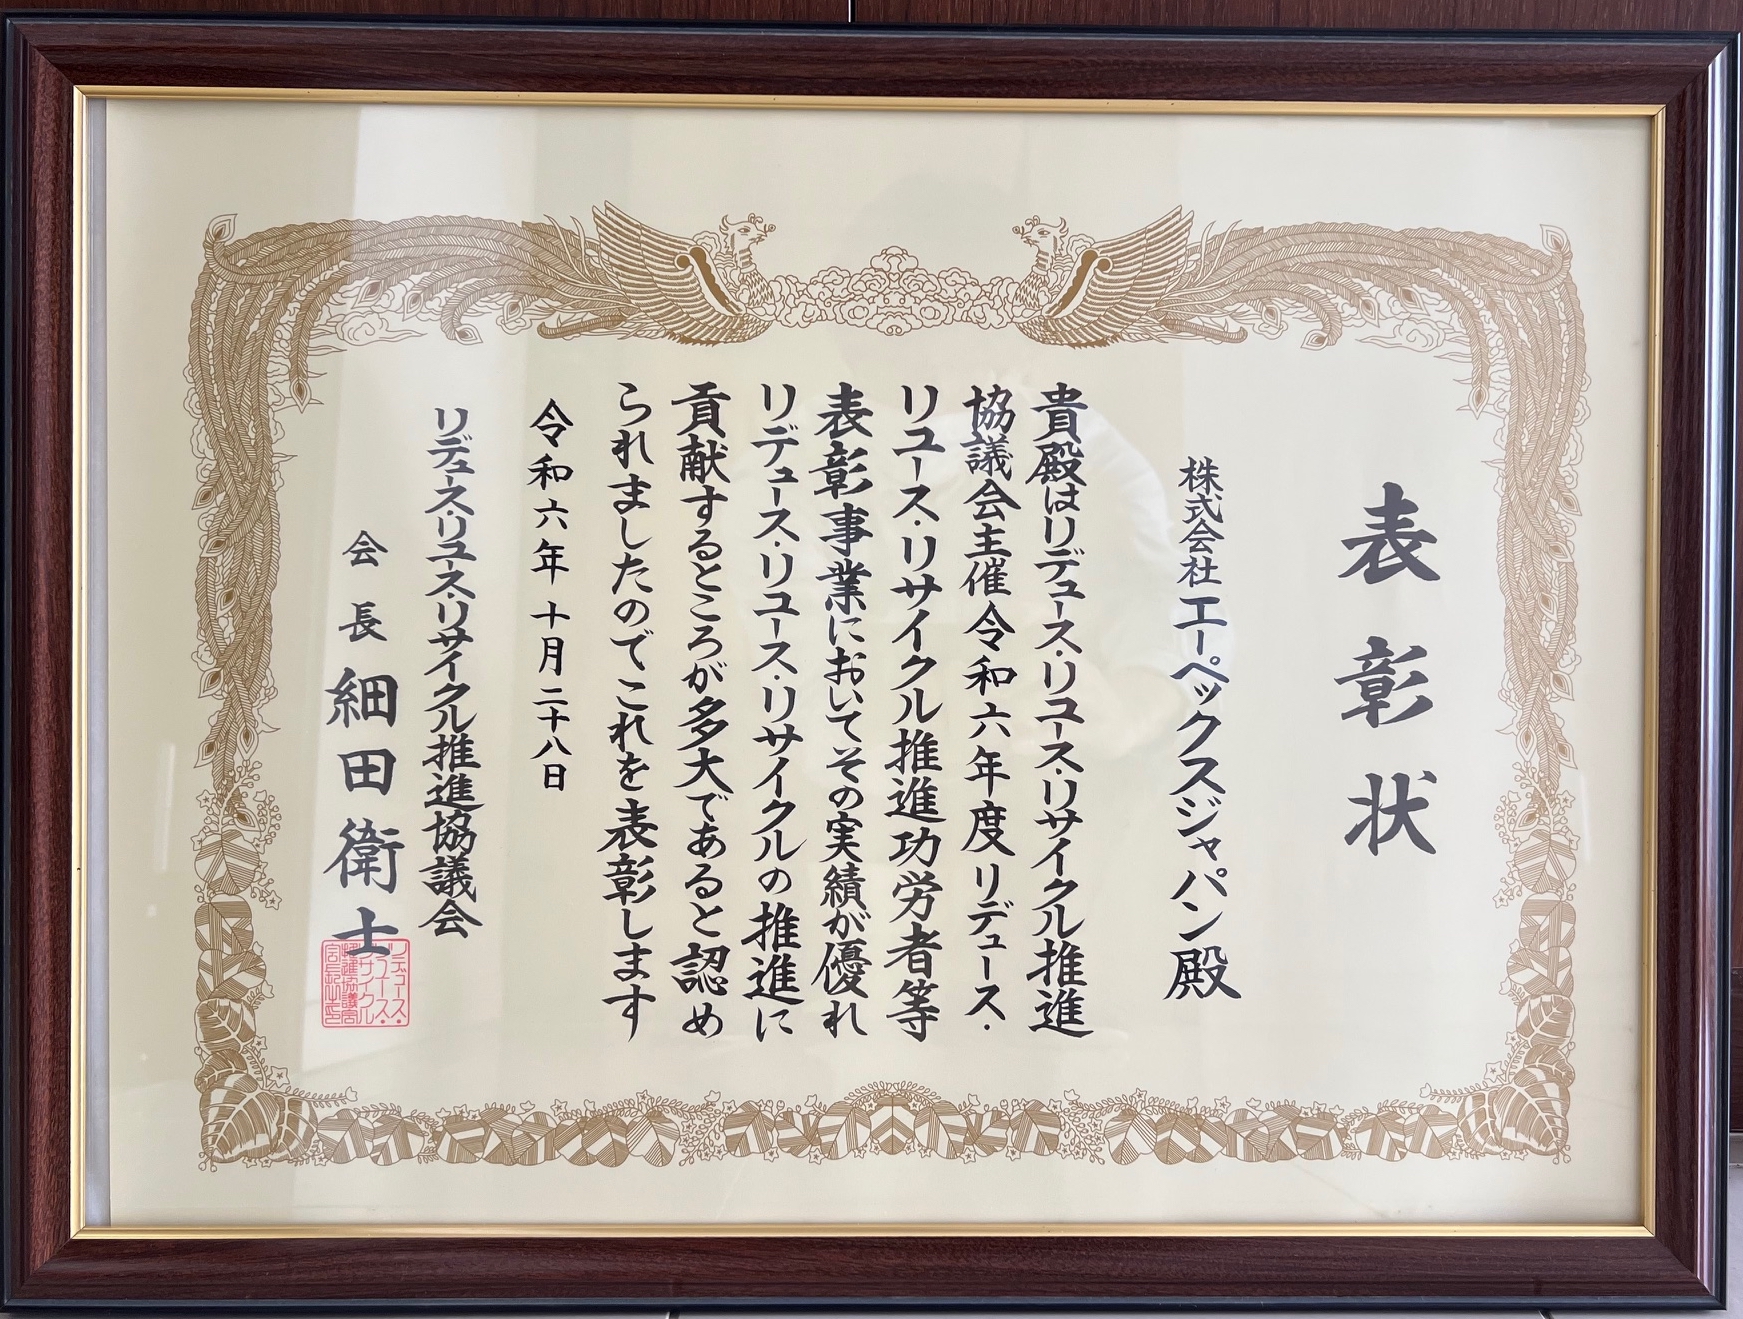 表彰状
株式会社エーペックスジャパン殿
貴殿はリデュース・リユース・リサイクル推進
協議会主催令和六年度リデュース・
リユース・リサイクル推進功労者等
表彰事業においてその実績が優れ
リデュース・リユース・リサイクルの推進に
貢献するところが多大であると認め
られましたのでこれを表彰します
令和六年十月二十八日
リデュース・リユース・リサイクル推進協議会
会長 細田衛士
リデュース・
リユース・
リサイクル
推進協議会
会長之印